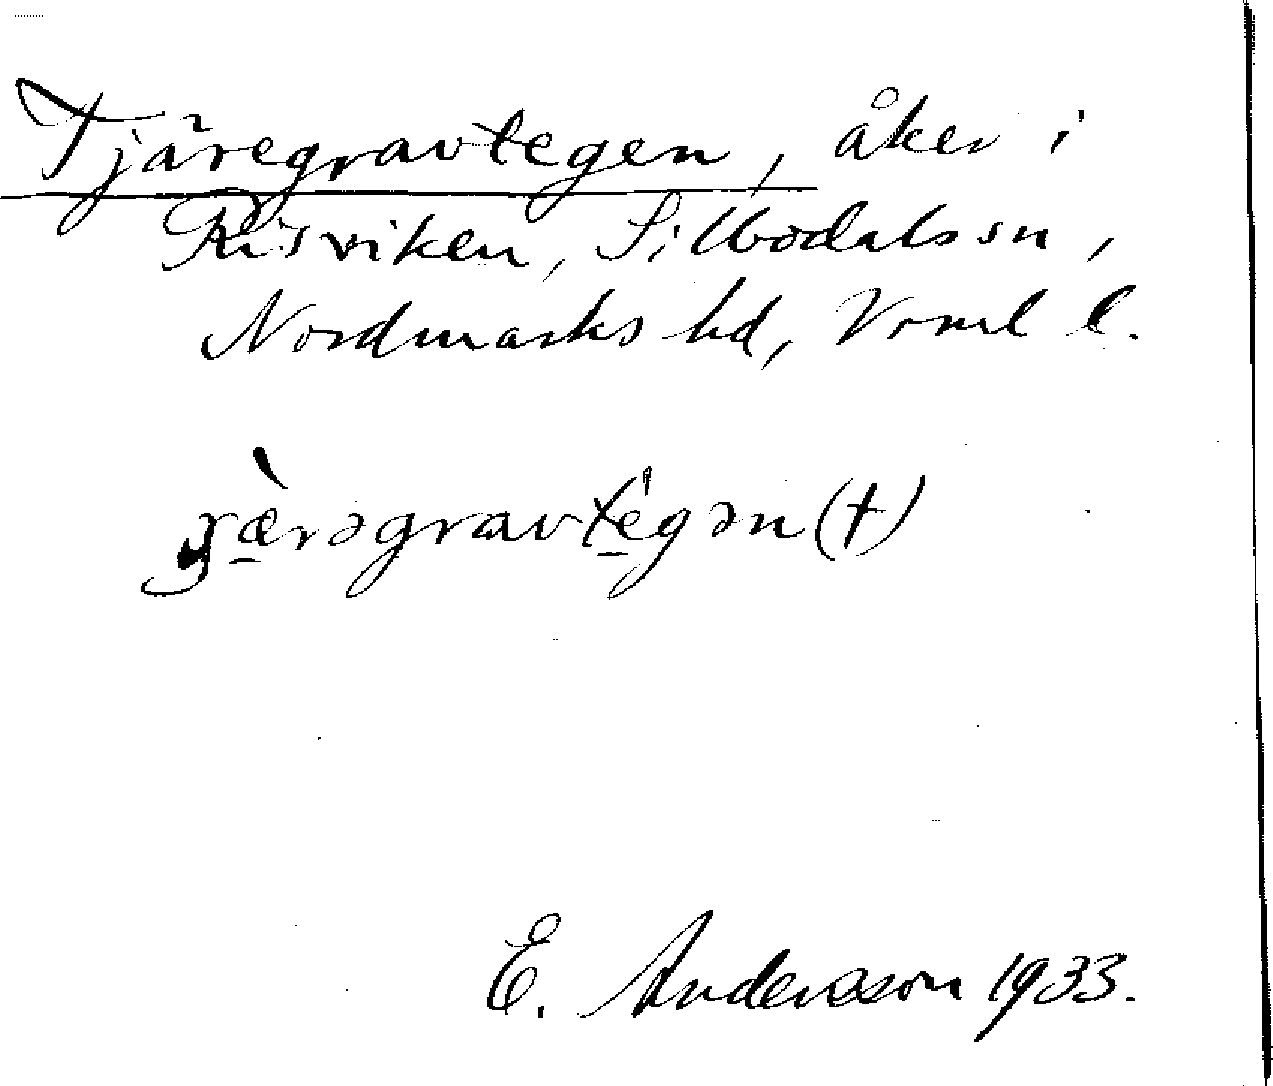 Tjäregravtegen, åker i
Risviken, Sillbodals sn,
Nordmarks hd, Vrml l.
E. Andersson 1933.